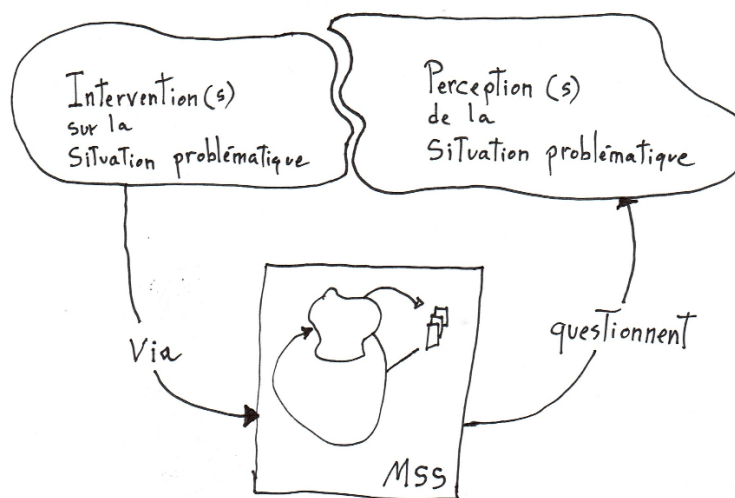 Intervention(s)
sur la
Situation problématique
Perception(s)
de la
Situation problématique
Via
questionnent
MSS